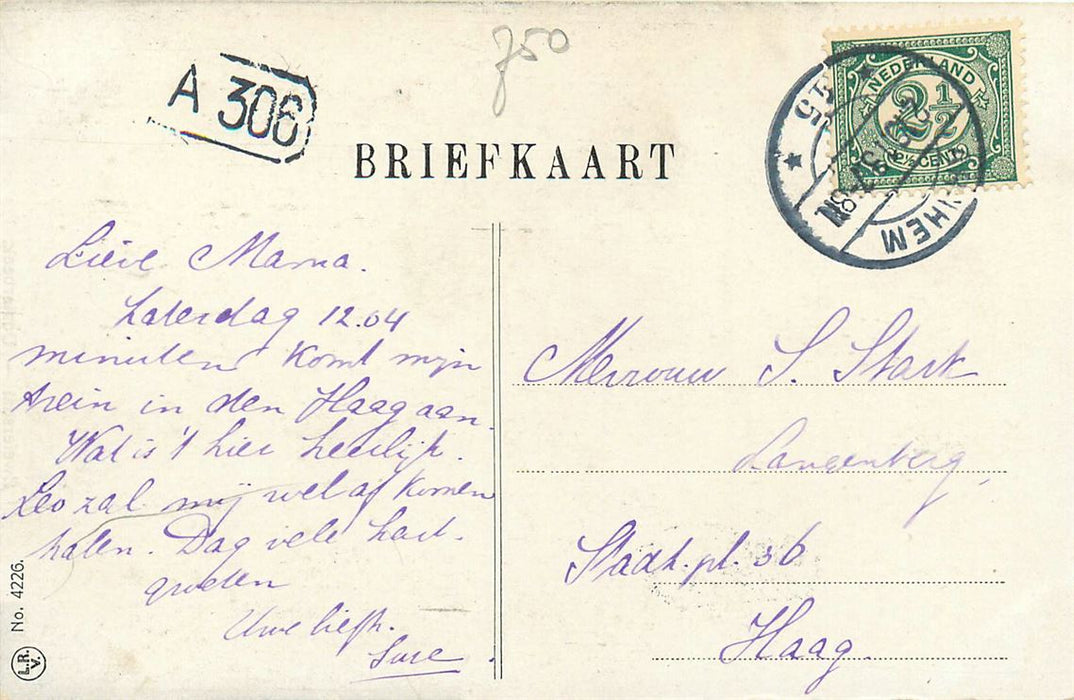 750
A 306
NEDERLAND
2½
2½ CENT
BRIEFKAART
Lieve Mama.
Zaterdag 12.04
minuten komt mijn
trein in den Haag aan.
Wat is 't hier heerlijk.
Leo zal mij wel af komen
halen. Dag vele hart.
groeten
Uwe liefh.
Mevrouw S. Stark
Langenberg,
Stadh. pl. 36
Haag.
No. 4226.
L.R.
V.